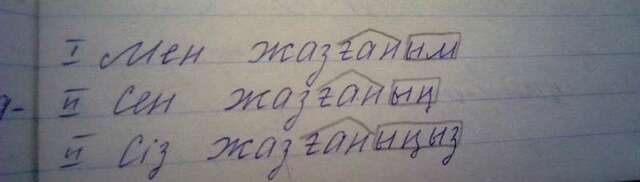 I Мен жазғаным
II Сен жазғаның
II Сіз жазғаныңыз